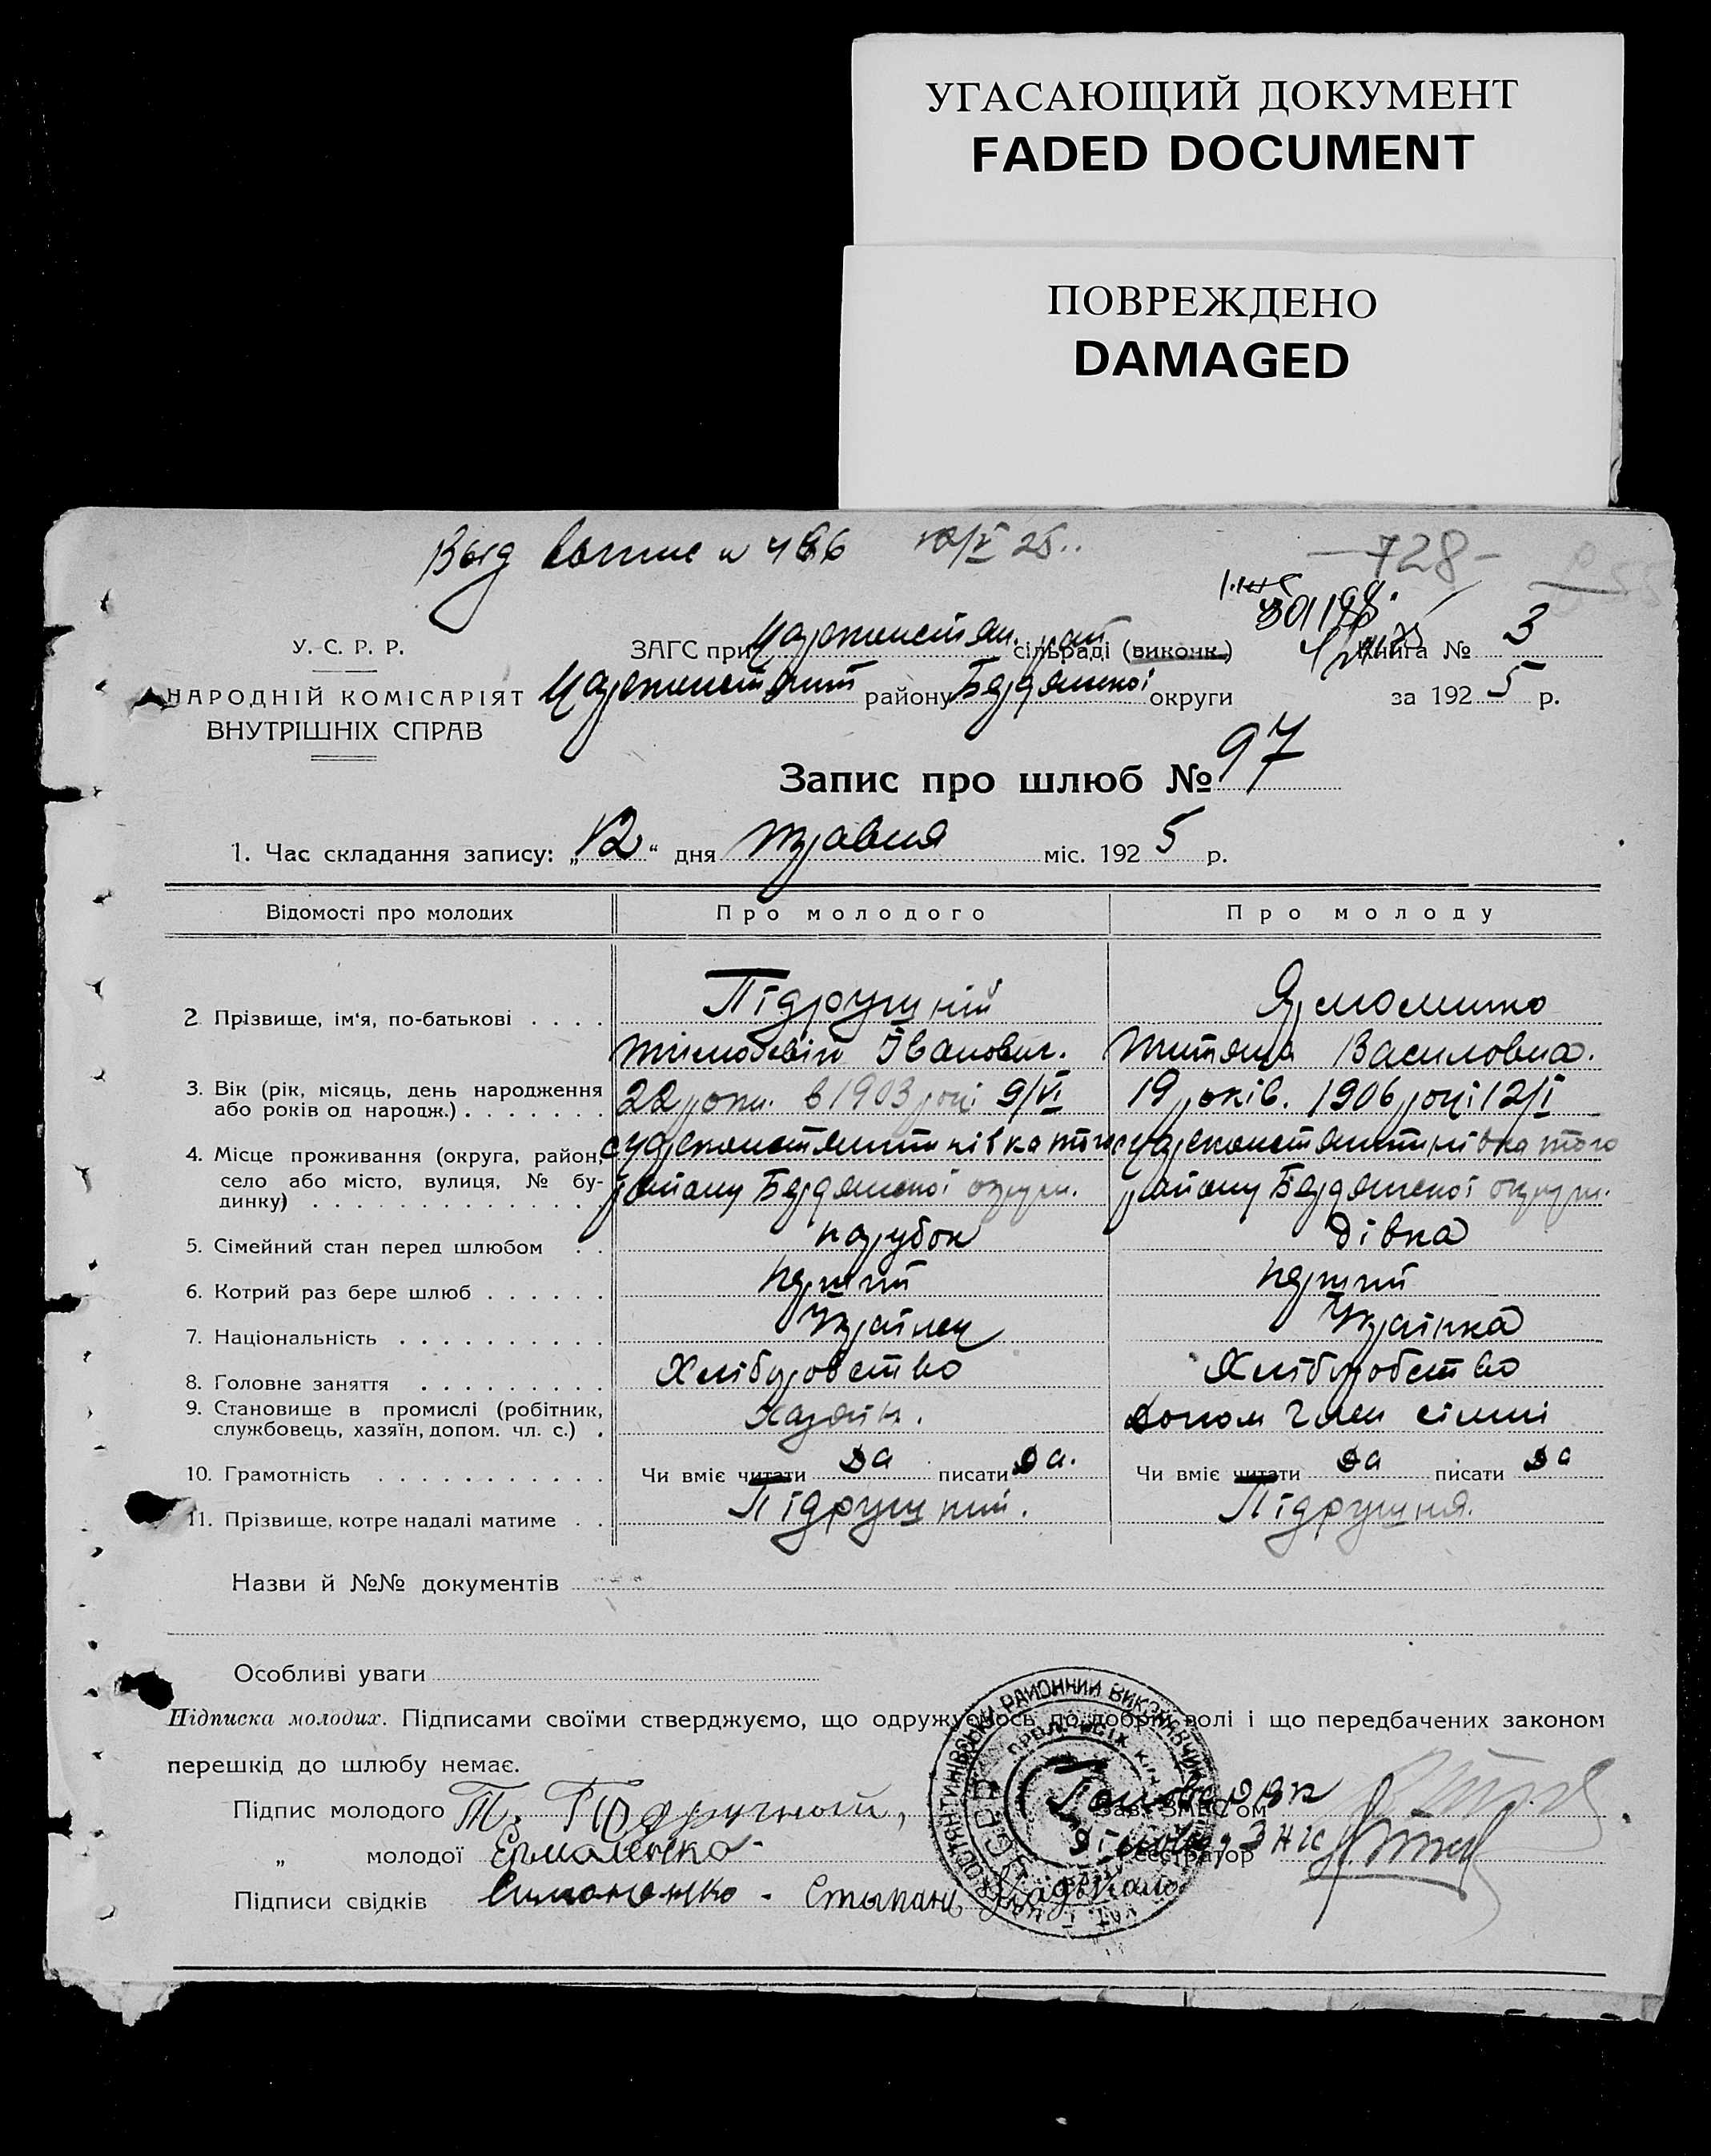 УГАСАЮЩИЙ ДОКУМЕНТ
FADED DOCUMENT
ПОВРЕЖДЕНО
DAMAGED
Выд 486 12/V 25..
-728-
У. С. Р. Р.
ЗАГС при Царконстян. рай сільраді (виконк.)
Книга № 3
НАРОДНІЙ КОМІСАРІЯТ
ВНУТРІШНІХ СПРАВ
Царконстянт району Бердянської округи
за 1925 р.
Запис про шлюб № 97
1. Час складання запису: „12“ дня травня міс. 1925 р.
Відомості про молодих Про молодого Про молоду
2 Прізвище, ім‘я, по-батькові . . . . Підручній Ярмоленко
Тимофвій Іванович. Титяна Василовна.
3. Вік (рік, місяць, день народження
або років од народж.) . . . . . . . 22 роки. в 1903 році 9/VI 19 років. 1906 році 12/I
4. Місце проживання (округа, район,
село або місто, вулиця, № бу-
динку) . . . . . . . . . . . . . .
с Царконстянтинівка того с Царконстянтинівка того
району Бердянської округи. району Бердянської округи.
5. Сімейний стан перед шлюбом . . парубок дівка
6. Котрий раз бере шлюб . . . . . . перший перший
7. Національність . . . . . . . . . . Українец Українка
8. Головне заняття . . . . . . . . . Хліборобство Хліборобство
9. Становище в промислі (робітник,
службовець, хазяїн, допом. чл. с.) . Хазяїн. допом член сімьи
10. Грамотність . . . . . . . . . . . Чи вміє читати да писати да. Чи вміє читати да писати да
11. Прізвище, котре надалі матиме . . Підручний. Підручня.
Назви й №№ документів
Особливі уваги
Підписка молодих. Підписами своїми стверджуємо, що одружуємось по добрій волі і що передбачених законом
перешкід до шлюбу немає.
Підпис молодого Т. Подручный,
Зав. ЗАГС‘ом
„ молодої Ермаленка
Реєстратор
Підписи свідків Симоненко - Стыпанц